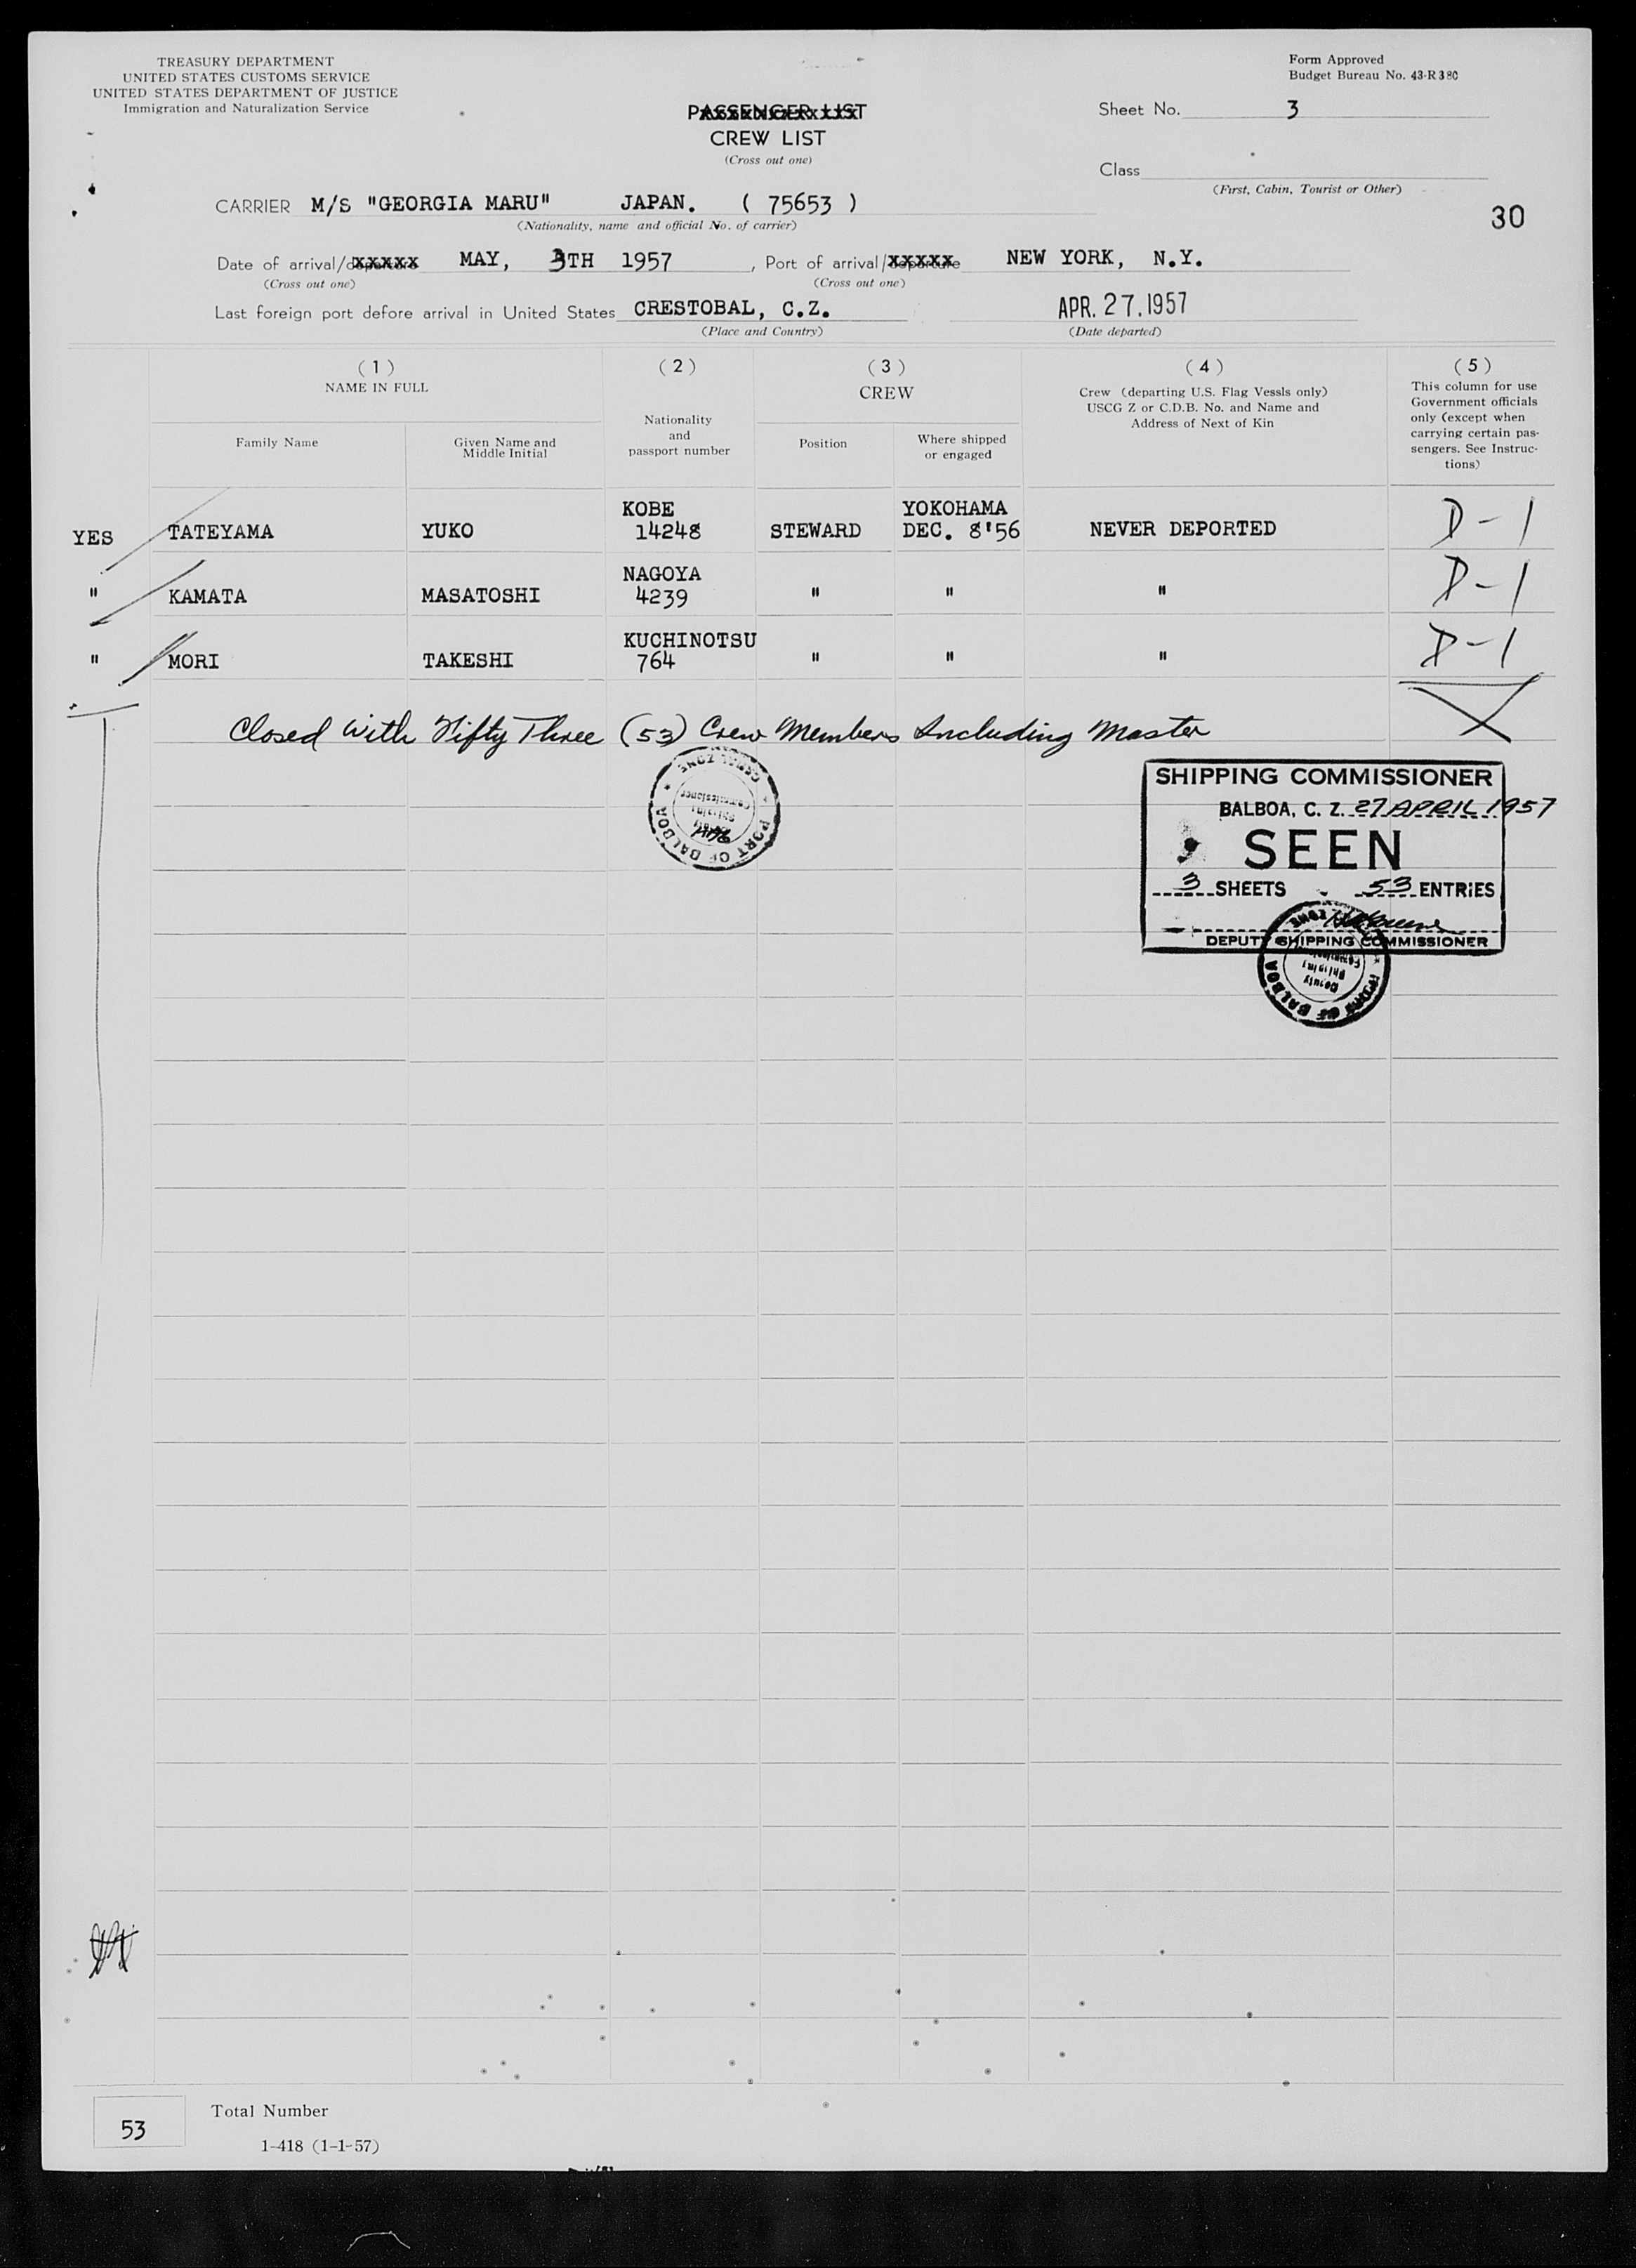 TREASURY DEPARTMENT
UNITED STATES CUSTOMS SERVICE
UNITED STATES DEPARTMENT OF JUSTICE
Immigration and Naturalization Service
Form Approved
Budget Bureau No. 43-R380
PASSENGER LIST
CREW LIST
(Cross out one)
Sheet No. 3
Class
(First, Cabin, Tourist or Other)
30
CARRIER M/S "GEORGIA MARU" JAPAN. ( 75653 )
(Nationality, name and official No. of carrier)
Date of arrival/departure MAY, 3TH 1957, Port of arrival/departure NEW YORK, N.Y.
(Cross out one) (Cross out one)
Last foreign port defore arrival in United States CRESTOBAL, C.Z. APR. 27.1957
(Place and Country) (Date departed)
(1) (2) (3) (4) (5)
NAME IN FULL
Family Name
Given Name and
Middle Initial
Nationality
and
passport number
CREW
Position
Where shipped
or engaged
Crew (departing U.S. Flag Vessls only)
USCG Z or C.D.B. No. and Name and
Address of Next of Kin
This column for use
Government officials
only (except when
carrying certain pas-
sengers. See Instruc-
tions)
KOBE YOKOHAMA
YES TATEYAMA YUKO 14248 STEWARD DEC. 8'56 NEVER DEPORTED D-1
NAGOYA
" KAMATA MASATOSHI 4239 " " " D-1
KUCHINOTSU
" MORI TAKESHI 764 " " " D-1
Closed With Fifty Three (53) Crew Members Including Master
CANAL ZONE
Deputy
Shipping
Commissioner
PORT OF BALBOA
SHIPPING COMMISSIONER
BALBOA, C. Z. 27 APRIL 1957
SEEN
3 SHEETS 53 ENTRIES
DEPUTY SHIPPING COMMISSIONER
Deputy
Shipping
PORT OF BALBOA
53
Total Number
1-418 (1-1-57)